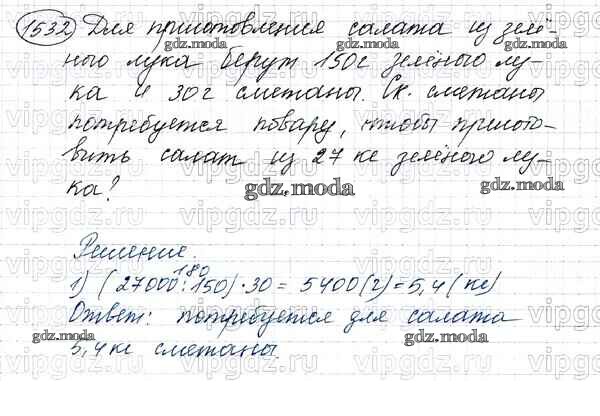 1532 Для приготовления салата из зелё-
ного лука берут 150г зелёного лу-
ка и 30г сметаны. Ск. сметаны
потребуется повару, чтобы пригото-
вить салат из 27 кг зелёного лу-
ка?
gdz.moda
Решение.
180
1) (27000:150)·30 = 5400(г)=5,4(кг)
Ответ: потребуется для салата
5,4кг сметаны.
gdz.moda
vipgdz.ru